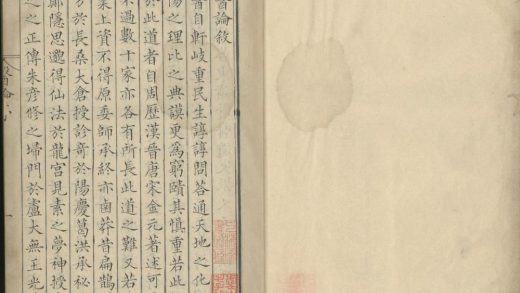 醫論敘
昔自軒岐重民生諄諄問荅通天地之化
陽之理比之典謨更為窮賾其慎重若此
於此道者自周歷漢晉唐宋金元著述可
不過數十家亦各有所長此道之難又若
業上資不得原委師承終亦鹵莽昔扁鵲
方於長桑太倉授診奇於陽慶葛洪承秘
鄭隱思邈得仙法於龍宮見素之夢神授
之之正傳朱彥修之埽門於盧大無王光